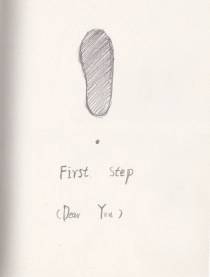 First Step
(Dear You)